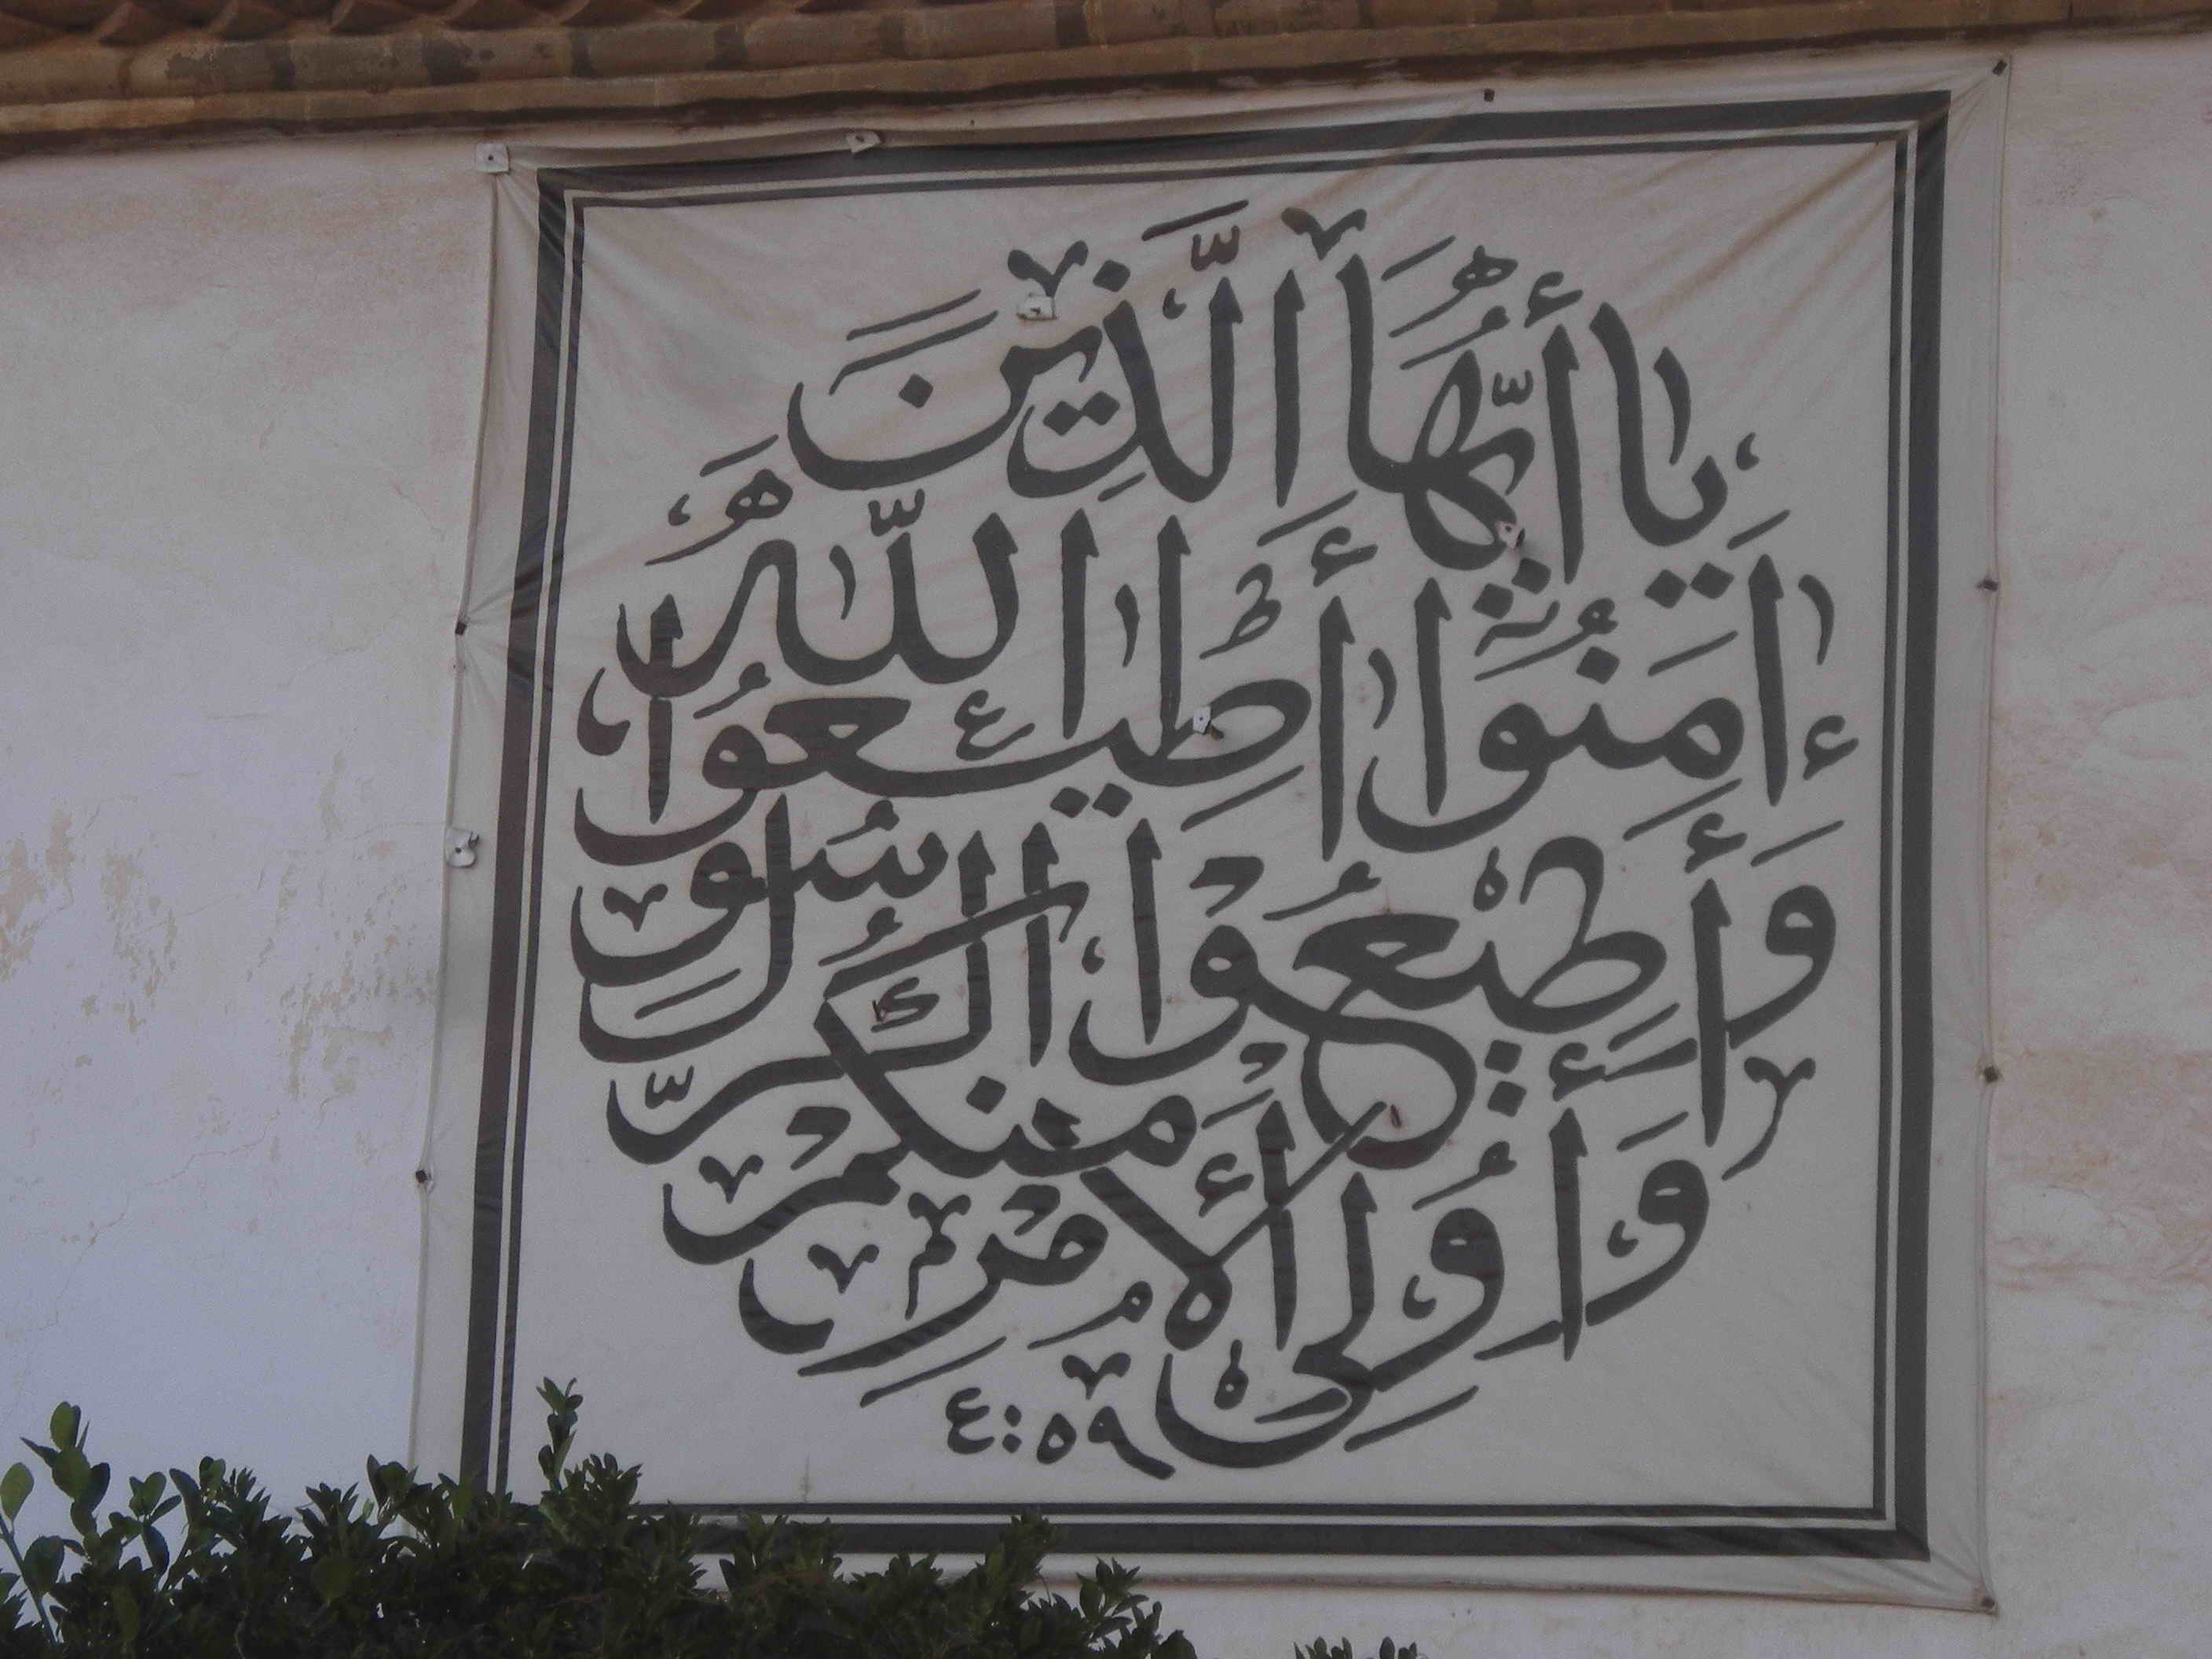 يَا أَيُّهَا الَّذِينَ
آمَنُوا أَطِيعُوا اللَّهَ
وَأَطِيعُوا الرَّسُولَ
وَأُولِي الْأَمْرِ مِنْكُمْ
٤:٥٩